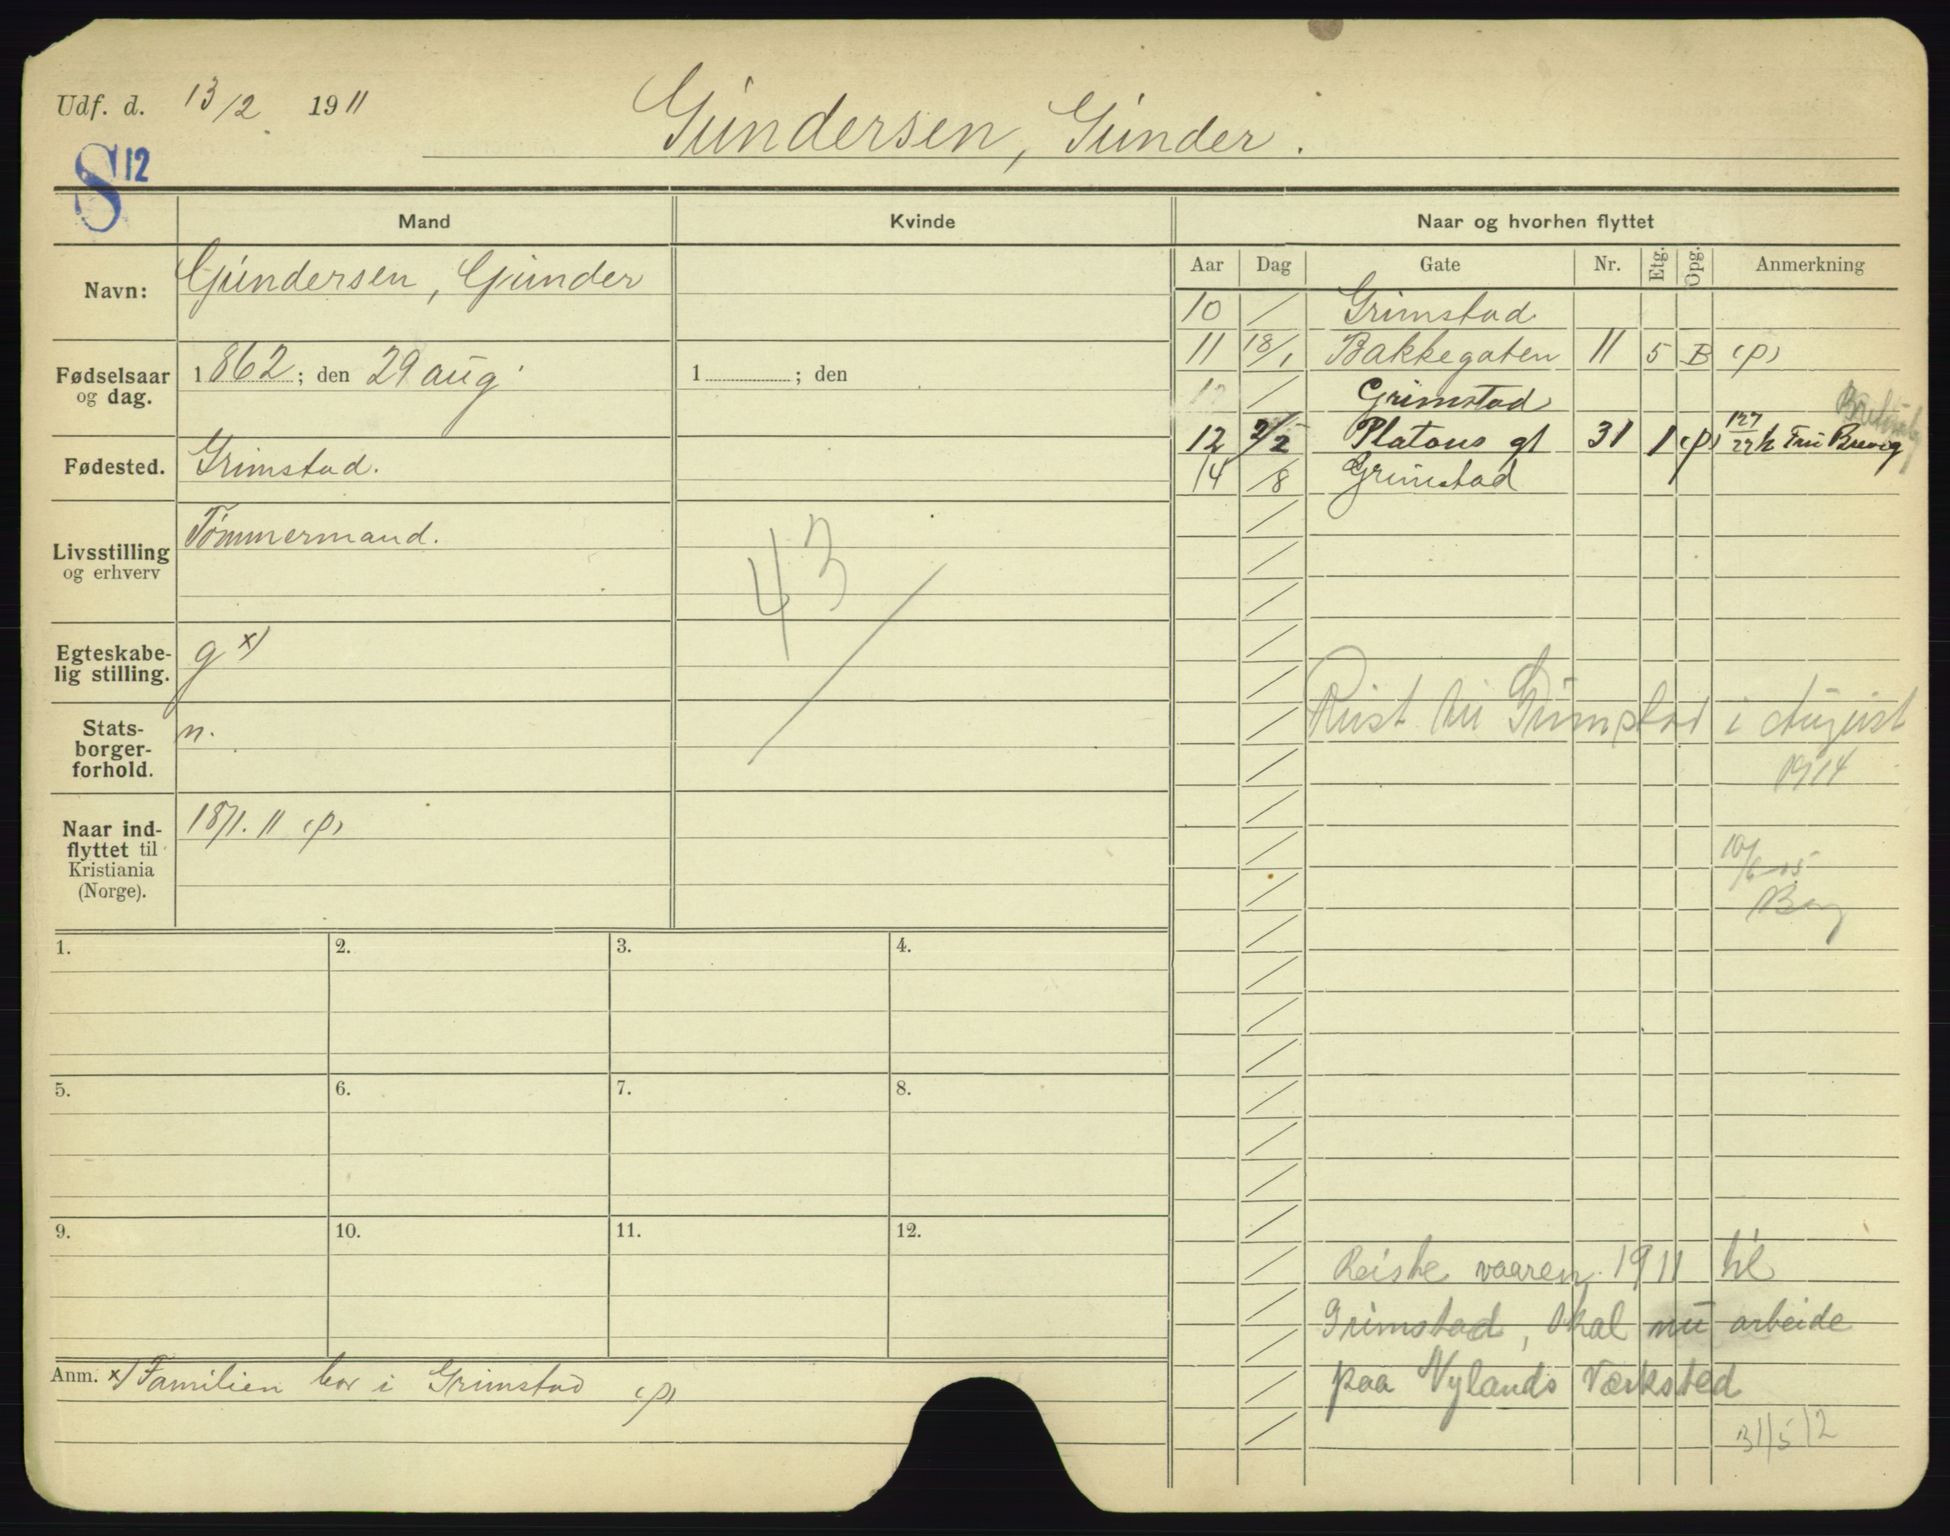 Udf. d. 13/2 1911
Gundersen, Gunder.
S 12
Mand Kvinde Naar og hvorhen flyttet
Aar Dag Gate Nr. Etg. Opg. Anmerkning
Navn: Gundersen, Gunder
Fødselsaar og dag. 1862; den 29 aug. 1 ; den
Fødested. Grimstad.
Livsstilling og erhverv Tømmermand.
Egteskabelig stilling. g x)
Statsborgerforhold. n.
Naar indflyttet til Kristiania (Norge). 18/1. 11 (p)
43
10 / Grimstad
11 18/1 Bakkegaten 11 5 B (p)
12 / Grimstad
12 2/2 Platous gt 31 1 (p) h Fru
14 /8 Grimstad
Reist til Grimstad i August
1914
10/6 15
1. 2. 3. 4.
5. 6. 7. 8.
9. 10. 11. 12.
Reiste vaaren 1911 til
Grimstad, skal nu arbeide
paa Nylands Værksted
31/5 12
Anm. x) Familien bor i Grimstad (p)